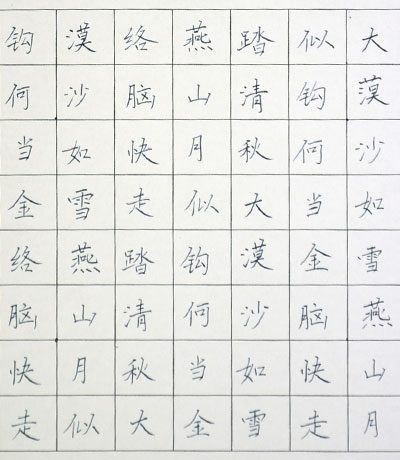 大漠沙如雪燕山月
似钩何当金脑快走
踏清秋大漠沙如雪
燕山月似钩何当金
络脑快走踏清秋大
漠沙如雪燕山月似
钩何当金络脑快走